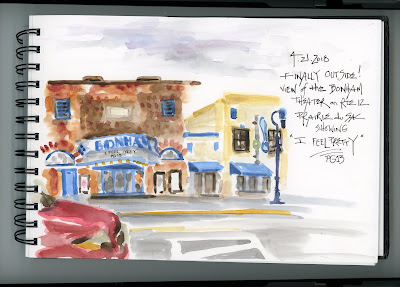 4.21.2018
FINALLY OUTSIDE!
VIEW of the BONHAM
THEATER on RTE 12
PRAIRIE du SAC
SHOWING
"I FEEL PRETTY"
PG13
BONHAM
I FEEL PRETTY
PG13